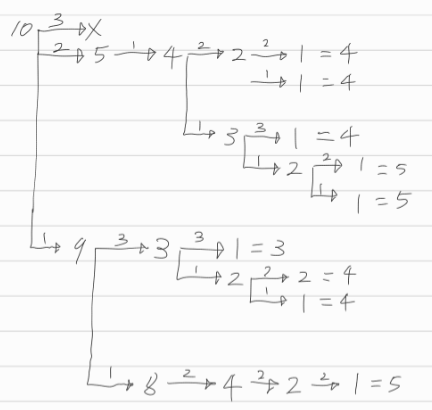 10 3→ X
2→ 5 1→ 4 2→ 2 2→ 1 = 4
1→ 1 = 4
1→ 3 3→ 1 = 4
1→ 2 2→ 1 = 5
1→ 1 = 5
1→ 9 3→ 3 3→ 1 = 3
1→ 2 2→ 2 = 4
1→ 1 = 4
1→ 8 2→ 4 2→ 2 2→ 1 = 5